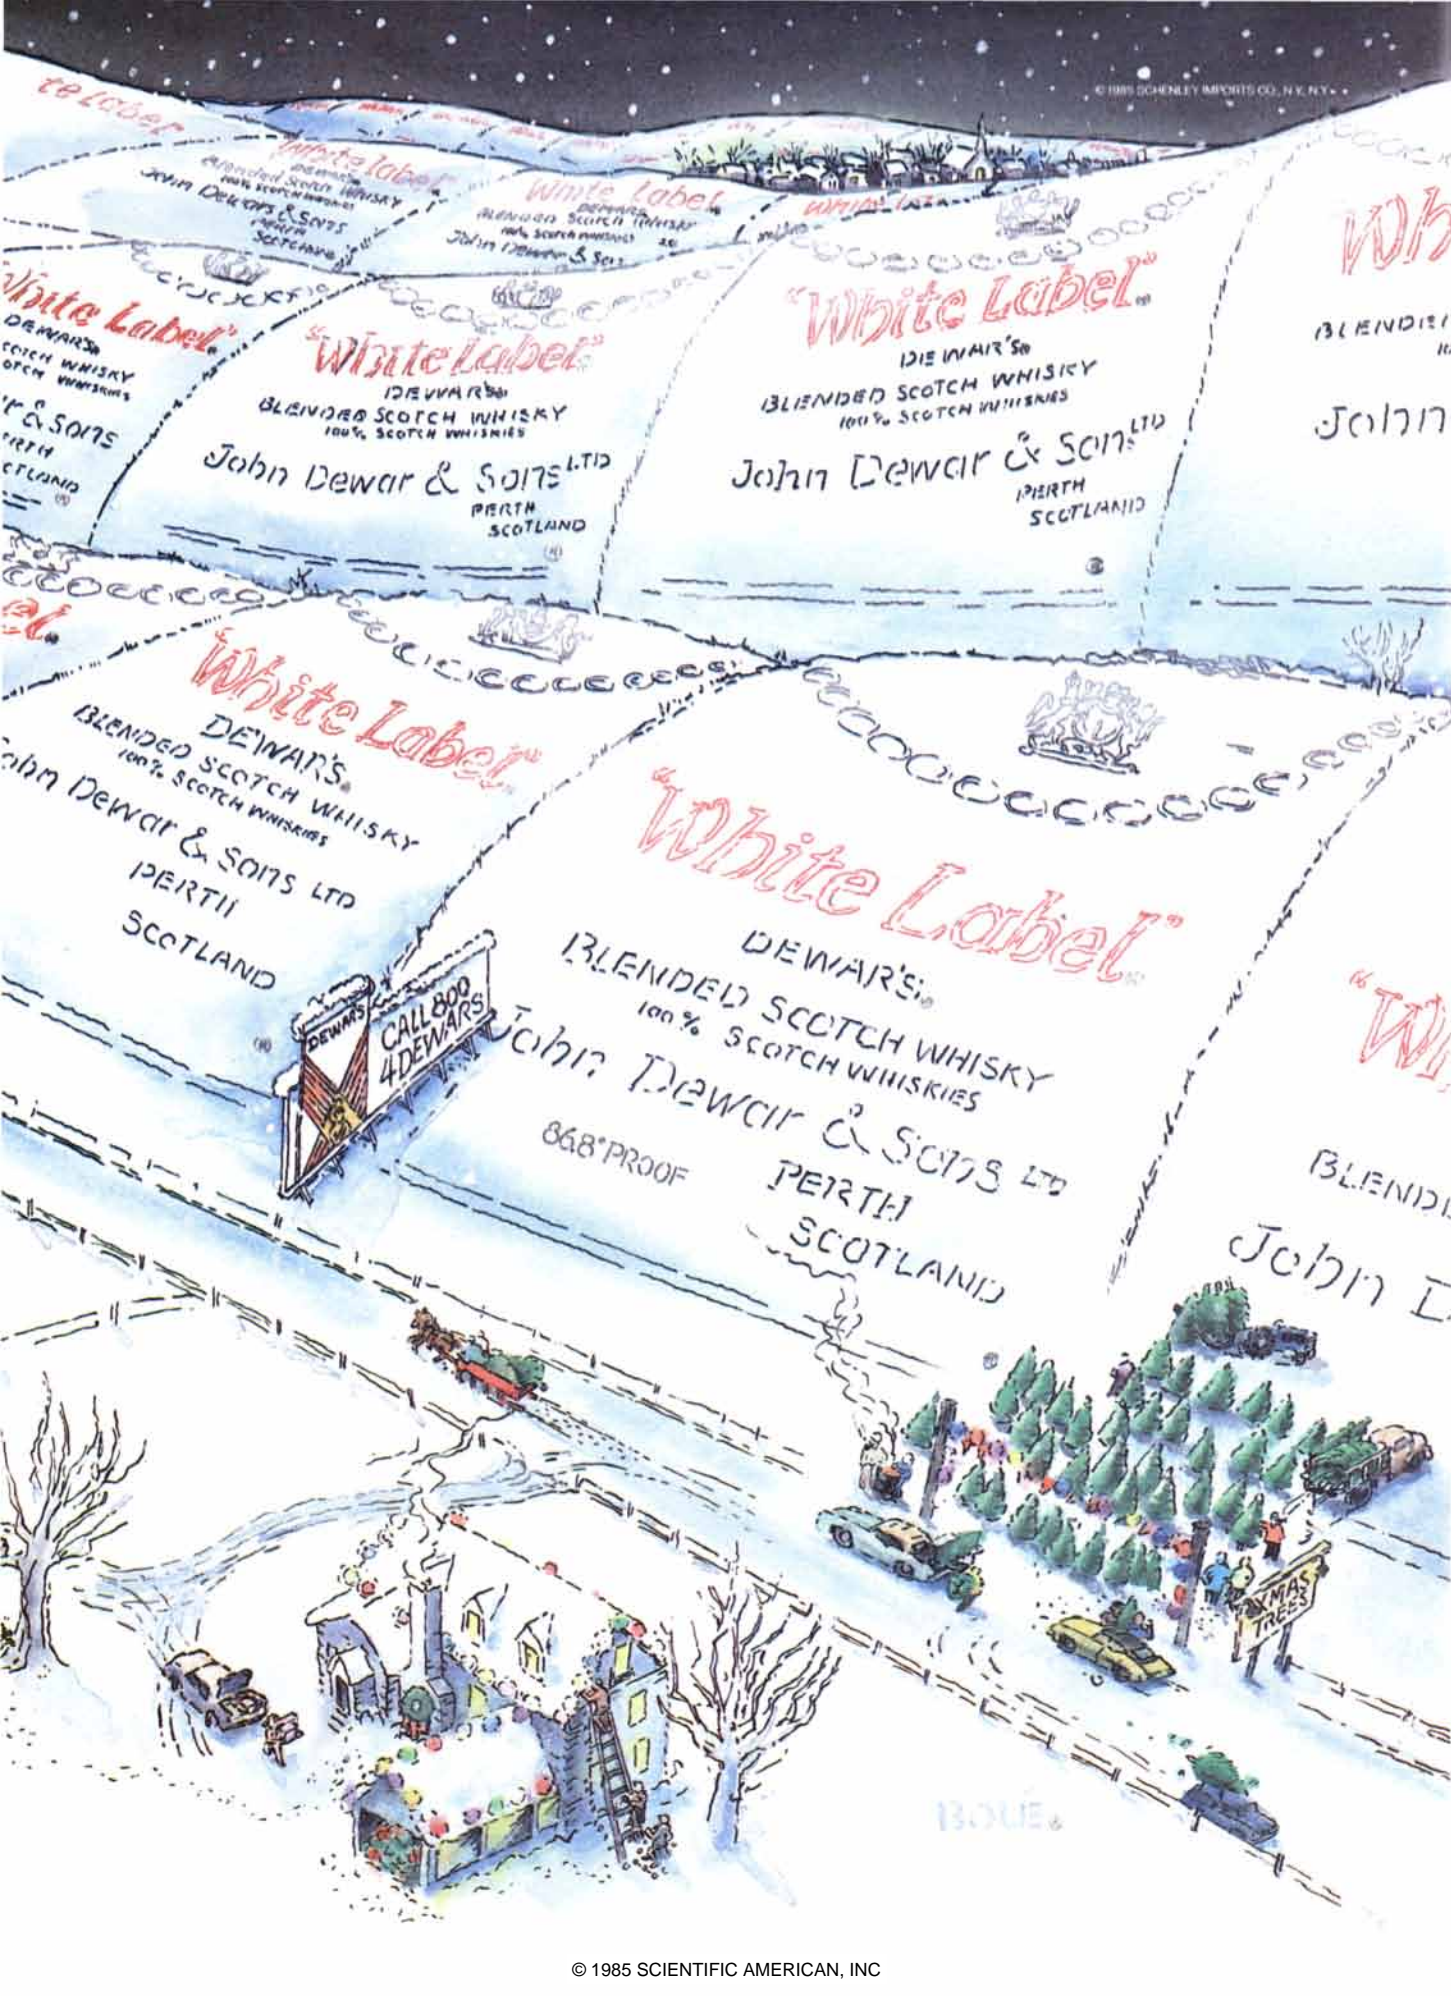 © 1985 SCHENLEY IMPORTS CO., N.Y., N.Y.
te Label
White Label
DEWARS
Blended Scotch Whisky
100% SCOTCH WHISKIES
John Dewars & Sons
PERTH
SCOTLAND
White Label
DEWARS
BLENDED Scotch Whisky
100% SCOTCH WHISKIES
John Dewar & Sons
White Label"
DEWAR'S®
SCOTCH WHISKY
SCOTCH WHISKIES
r & Sons
PERTH
SCOTLAND
®
"White Label"
DEWAR'S®
BLENDED SCOTCH WHISKY
100% SCOTCH WHISKIES
John Dewar & Sons LTD
PERTH
SCOTLAND
®
"White Label"®
DEWAR'S®
BLENDED SCOTCH WHISKY
100% SCOTCH WHISKIES
John Dewar & Sons LTD
PERTH
SCOTLAND
®
"Wh
BLENDE
John
el.
"White Label"
DEWAR'S®
BLENDED SCOTCH WHISKY
100% SCOTCH WHISKIES
John Dewar & Sons LTD
PERTH
SCOTLAND
®
"White Label"®
DEWAR'S®
BLENDED SCOTCH WHISKY
100% SCOTCH WHISKIES
John Dewar & Sons LTD
86.8° PROOF
PERTH
SCOTLAND
®
"Wh
BLENDE
John D
DEWARS
CALL 800
4DEWARS
XMAS
TREES
© 1985 SCIENTIFIC AMERICAN, INC